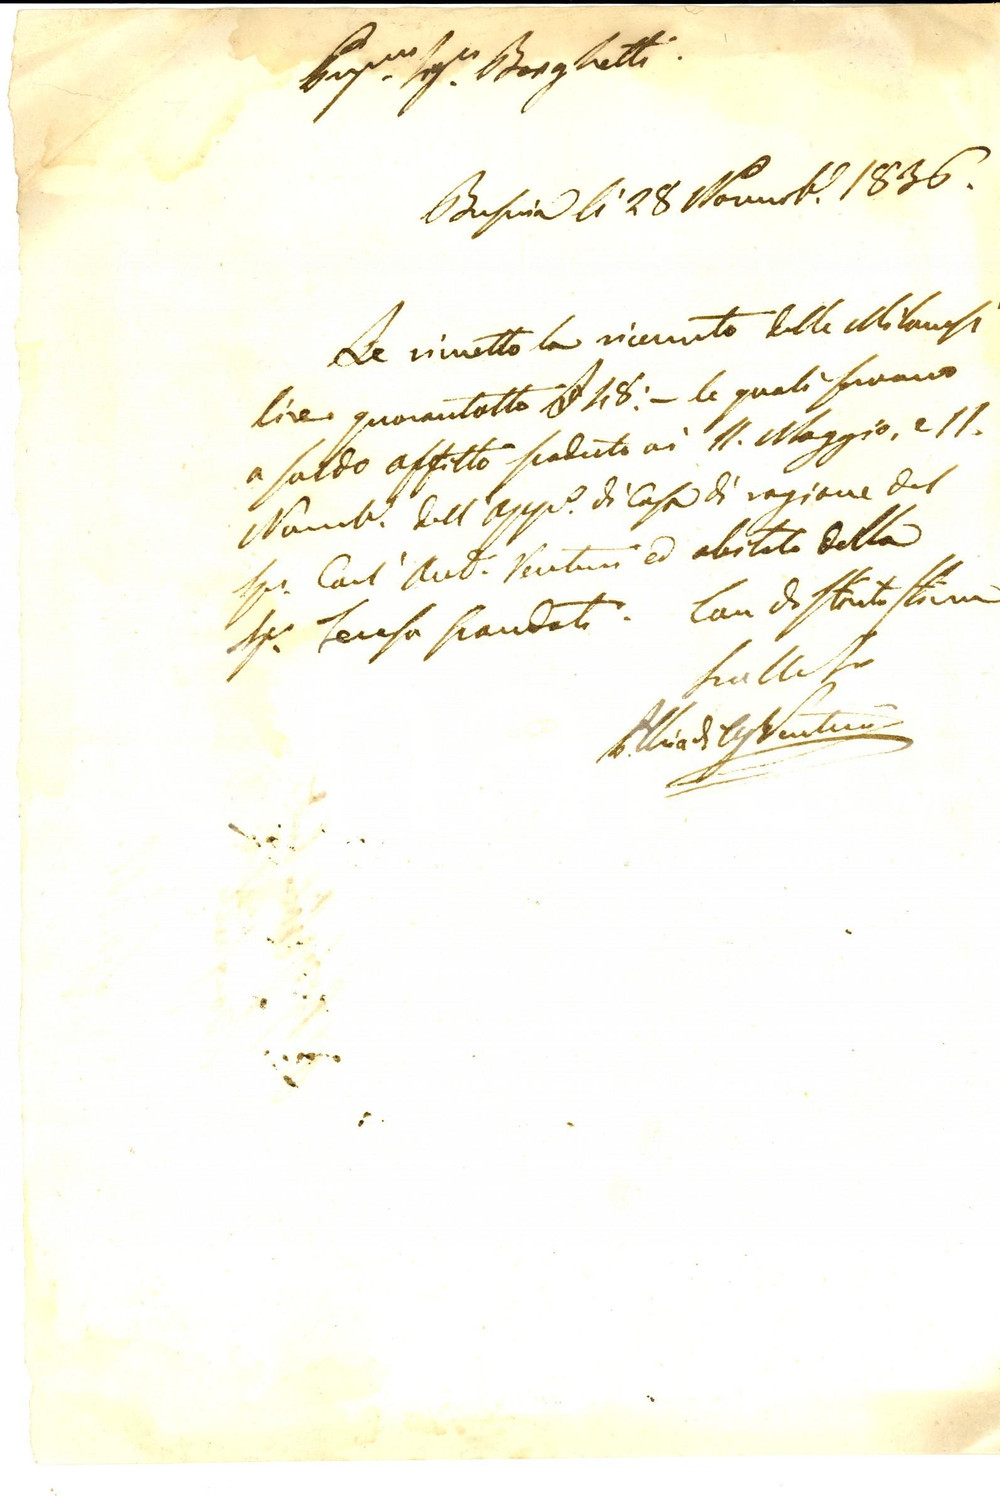 Sigr. Borghetti.
Brescia li 28 Novemb.e 1836.
Le rimetto la ricevuta delle Milanesi
lire quarantotto £ 48:- le quali servano
a saldo affitto scaduto ai 11. Maggio, e 11.
Novemb.e dell' App.o di Casa di ragione del
Sigr. Carl' Ant.o Venturi ed abitato dalla
Sig.a Teresa Con distintissima
Venturi